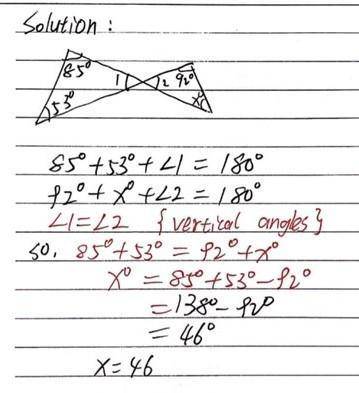 Solution :
85° 1 2 92°
53° x°
85° + 53° + ∠1 = 180°
92° + x° + ∠2 = 180°
∠1 = ∠2 {vertical angles}
so, 85° + 53° = 92° + x°
x° = 85° + 53° - 92°
= 138° - 92°
= 46°
x = 46